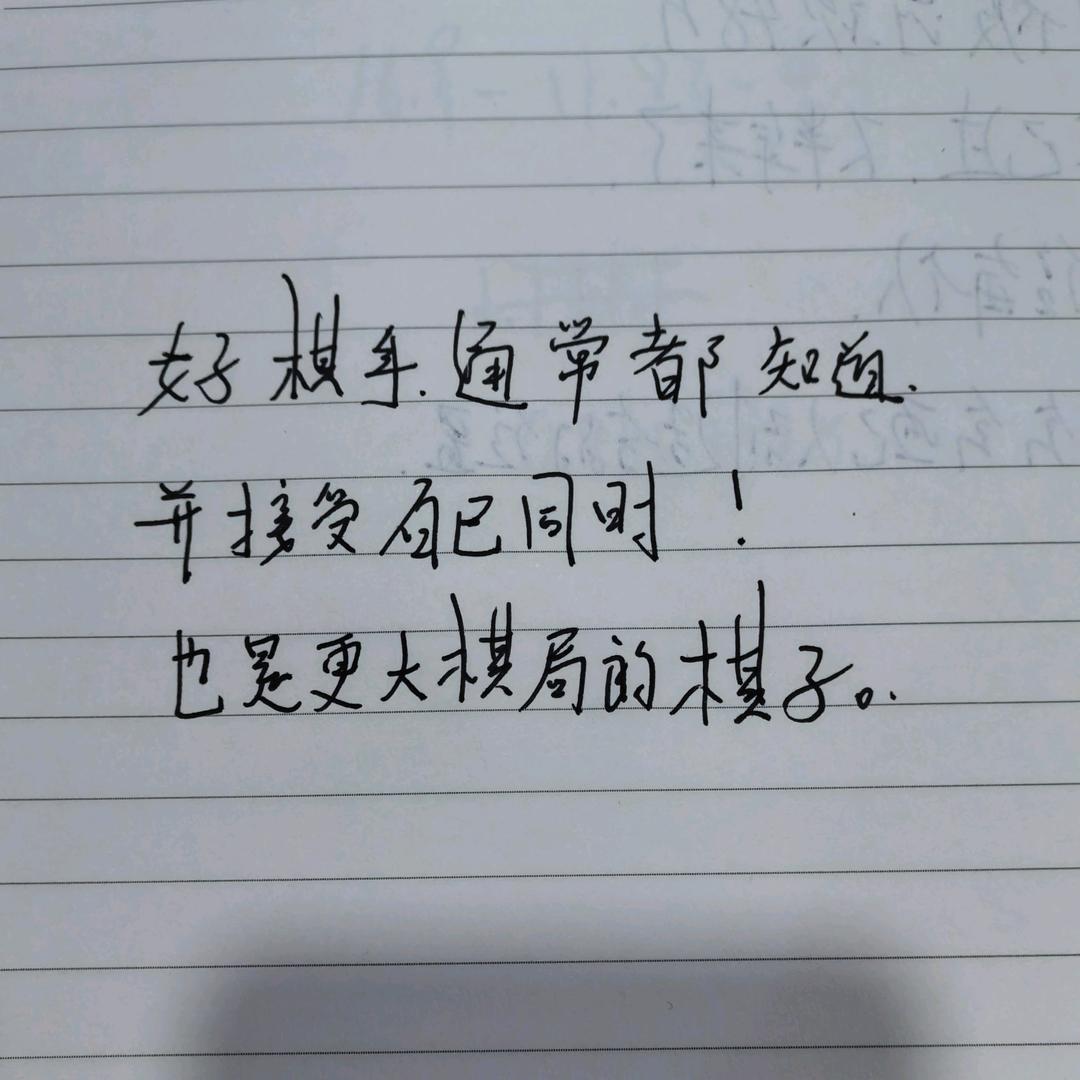 好棋手.通常都知道.
并接受自己同时！
也是更大棋局的棋子。.